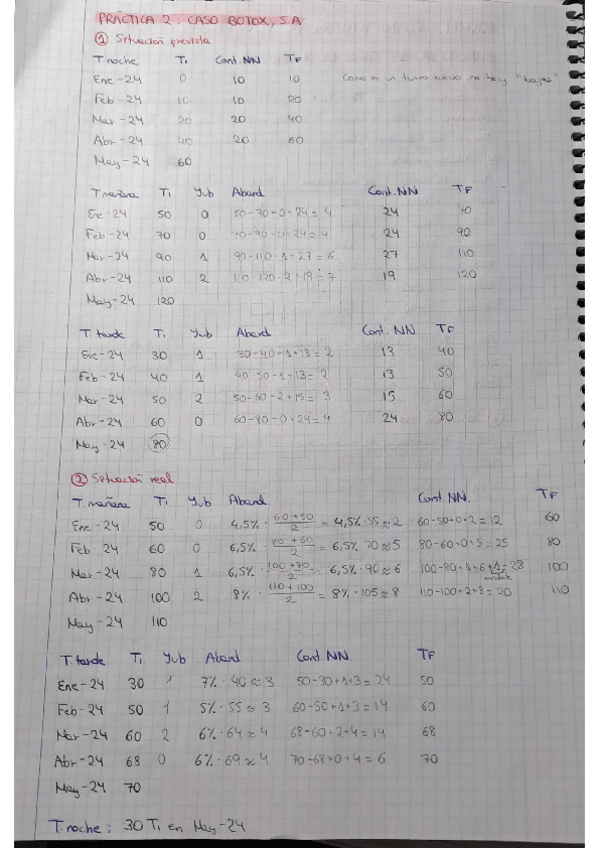 PRÁCTICA 2: CASO BOTOX, S.A
1 Situación prevista
T noche Ti Cont. NN TF
Ene-24 0 10 10 Como es un turno nuevo no hay "bajas"
Feb-24 10 10 20
Mar-24 20 20 40
Abr-24 40 20 60
May-24 60
T mañana Ti Jub Aband Cont. NN TF
Ene-24 50 0 50-70-0+24=4 24 70
Feb-24 70 0 70-90-0+24=4 24 90
Mar-24 90 1 90-110-1+27=6 27 110
Abr-24 110 2 110-120-2+19=7 19 120
May-24 120
T. tarde Ti Jub Aband Cont. NN TF
Ene-24 30 1 30-40-1+13=2 13 40
Feb-24 40 1 40-50-1+13=2 13 50
Mar-24 50 2 50-60-2+15=3 15 60
Abr-24 60 0 60-80-0+24=4 24 80
May-24 80
2 Situación real
T. mañana Ti Jub Aband Cont. NN. TF
Ene-24 50 0 4,5%·(60+50)/2 = 4,5%·55≈2 60-50+0+2=12 60
Feb-24 60 0 6,5%·(80+60)/2 = 6,5%·70≈5 80-60+0+5=25 80
Mar-24 80 1 6,5%·(100+80)/2 = 6,5%·90≈6 100-80+1+6+1=28 100
Abr-24 100 2 8%·(110+100)/2 = 8%·105≈8 110-100+2+8=20 110
May-24 110
T. tarde Ti Jub Aband Cont. NN. TF
Ene-24 30 1 7%·40≈3 50-30+1+3=24 50
Feb-24 50 1 5%·55≈3 60-50+1+3=14 60
Mar-24 60 2 6%·64≈4 68-60+2+4=14 68
Abr-24 68 0 6%·69≈4 70-68+0+4=6 70
May-24 70
T. noche: 30 Ti en May-24